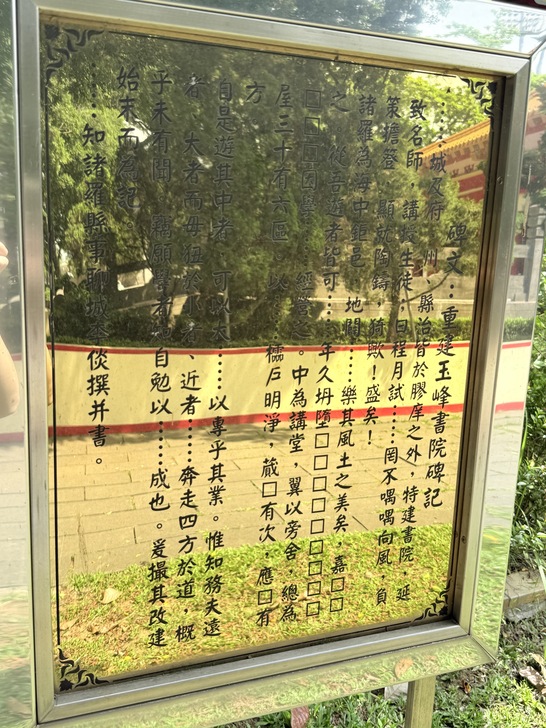 碑文：重建玉峰書院碑記
……城及府、州、縣治皆於膠庠之外，特建書院，延
致名師，講授生徒；日程月試……罔不喁喁向風，負
策擔簦，顒就陶鑄，猗歟！盛矣！
諸羅為海中鉅邑，地闊……樂其風土之美矣，嘉□□
之，從吾遊者皆可……年久坍墮□□□□□□□□
□□□□因舉……經營之。中為講堂，翼以旁舍，總為
屋三十有六區。以……櫺戶明淨，蕆□有次，應□有
方
自是遊其中者，可以大……以專乎其業。惟知務夫遠
者、大者而毋狃於小者、近者……奔走四方於道，概
乎未有聞。竊願學者之自勉以……成也。爰撮其改建
始末而為記
……知諸羅縣事聊城李倓撰并書。